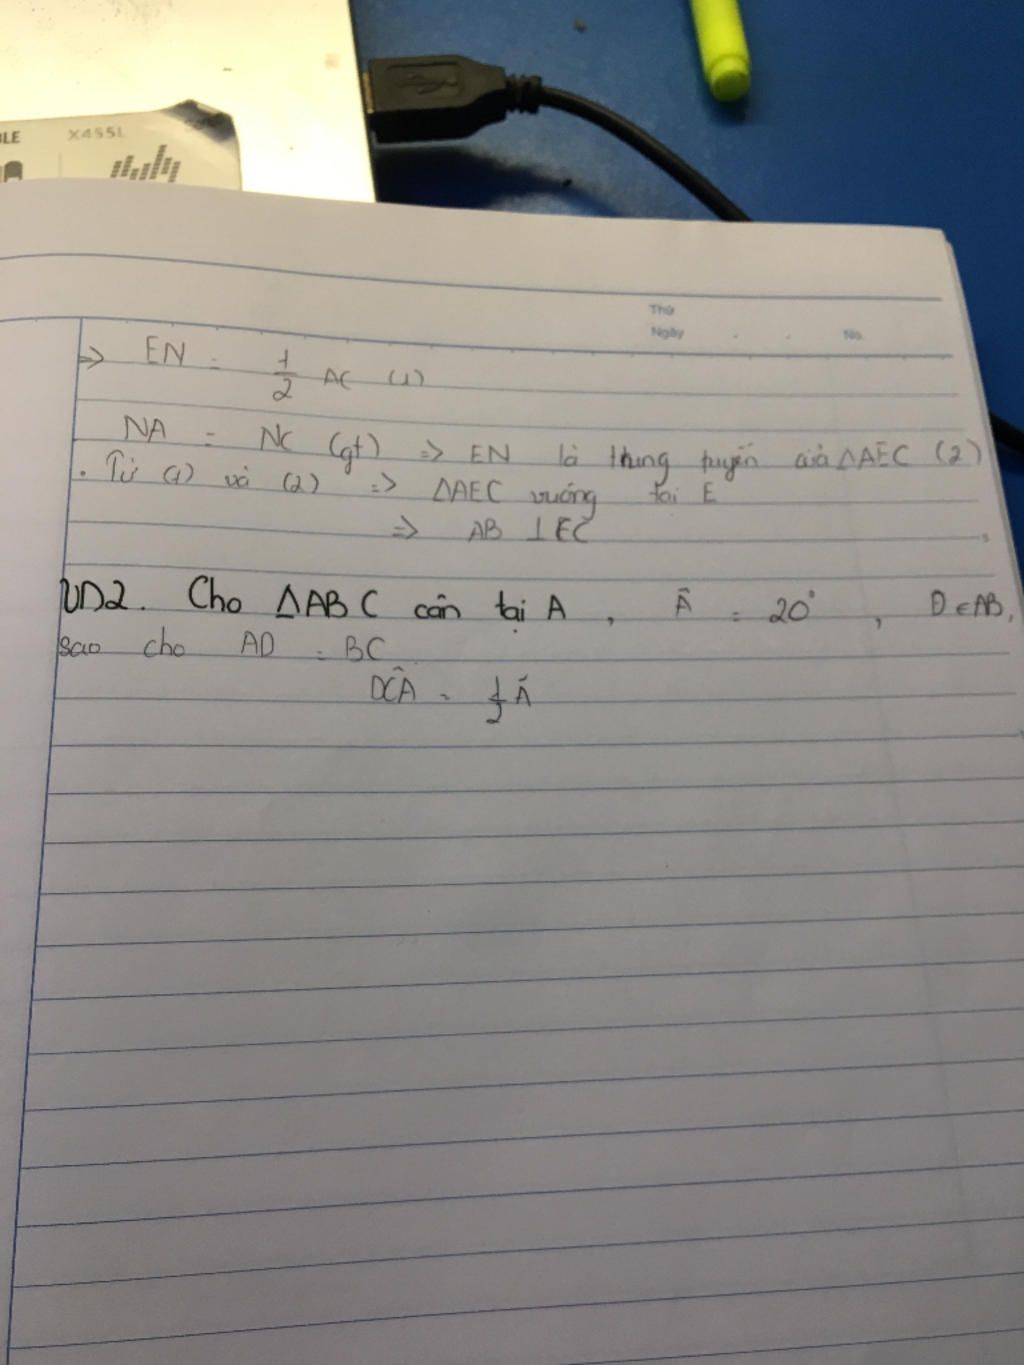 BLE X455L
Thứ
Ngày . . No.
=> EN = 1/2 AC (1)
NA = NC (gt) => EN là trung tuyến của ΔAEC (2)
. Từ (1) và (2) => ΔAEC vuông tại E
=> AB ⊥ EC
VD2. Cho ΔABC cân tại A, Â = 20°, D ∈ AB,
sao cho AD = BC
DĈA = 1/2 Â